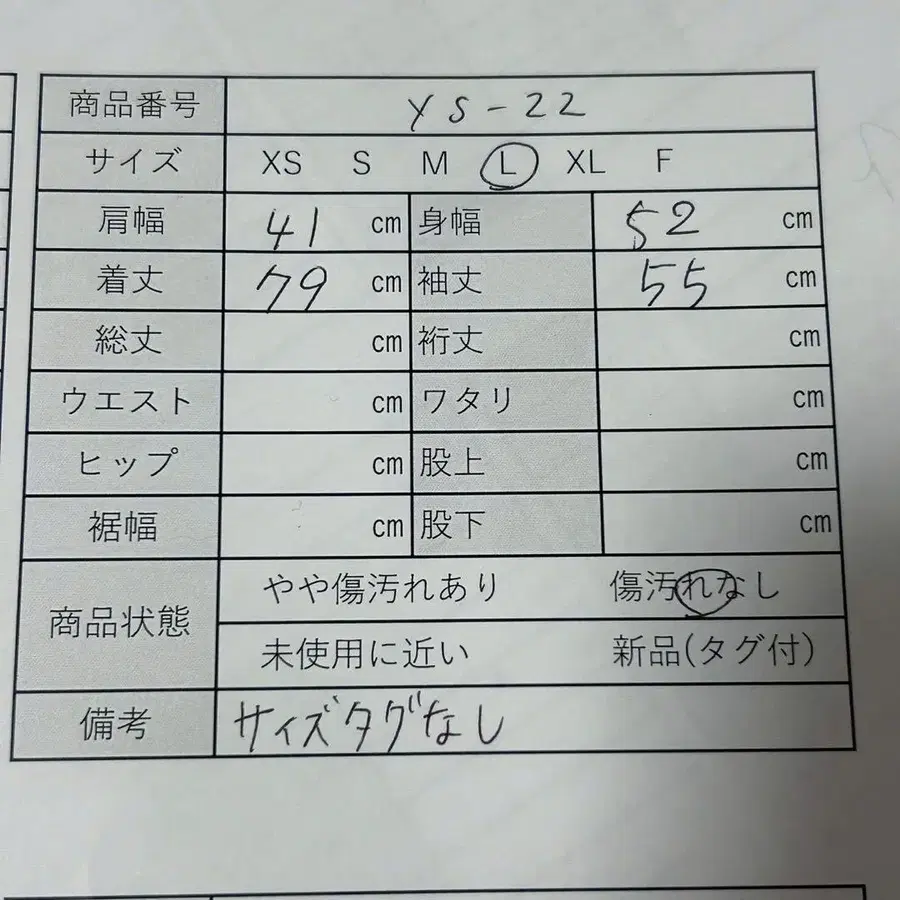 商品番号 YS-22
サイズ XS S M L XL F
肩幅 41 cm 身幅 52 cm
着丈 79 cm 袖丈 55 cm
総丈 cm 裄丈 cm
ウエスト cm ワタリ cm
ヒップ cm 股上 cm
裾幅 cm 股下 cm
商品状態 やや傷汚れあり 傷汚れなし
未使用に近い 新品(タグ付)
備考 サイズタグなし